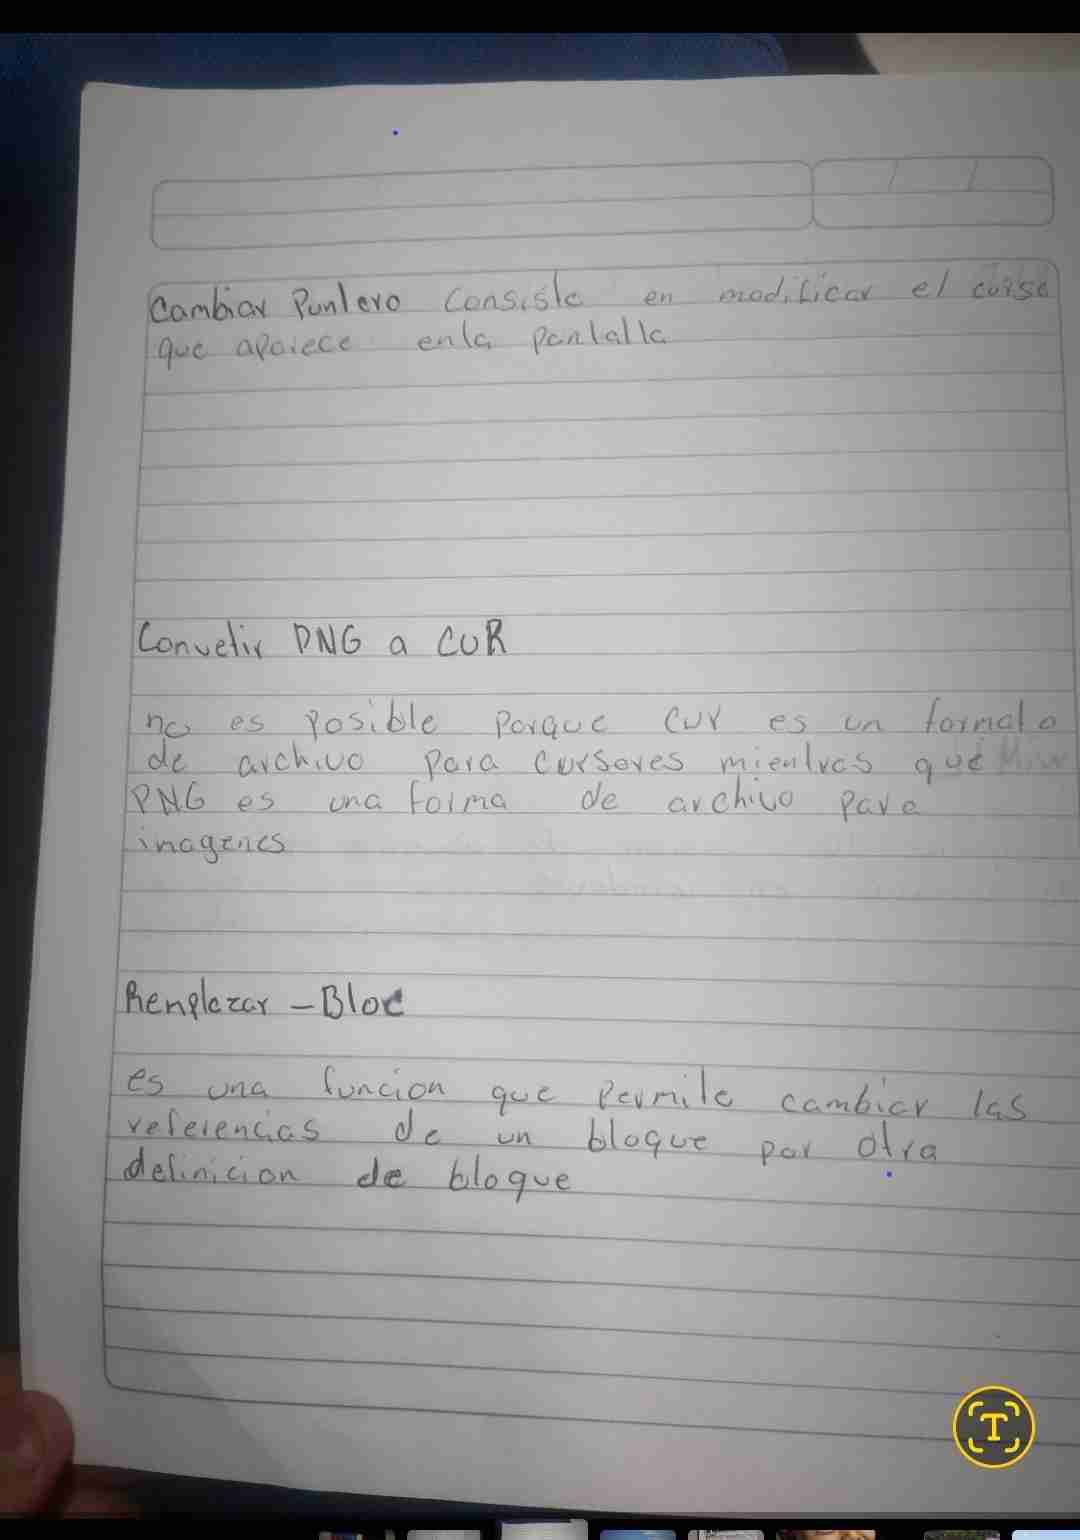 Cambiar Puntero Consiste en modificar el curso
que aparece enla pantalla
Convetir PNG a CUR
no es posible porque cur es un formato
de archivo para cursores mientras que
PNG es una forma de archivo para
inagenes
Renplazar - Bloc
es una funcion que permite cambiar las
referencias de un bloque por otra
definicion de bloque